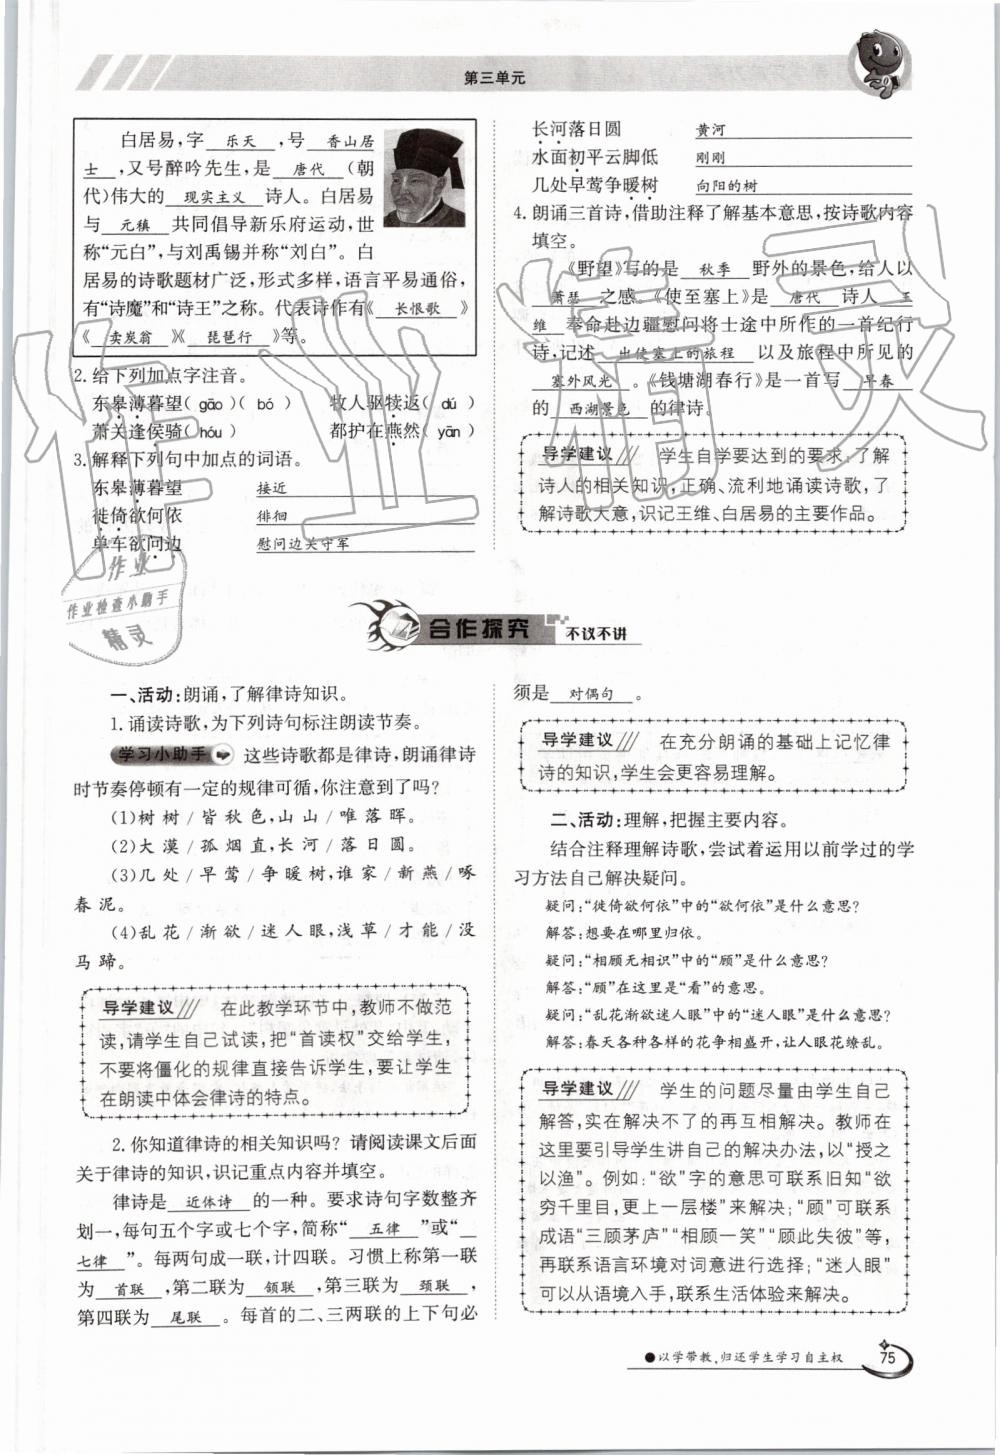 第三单元
白居易,字 乐天 ,号 香山居
士 ,又号醉吟先生,是 唐代 (朝
代)伟大的 现实主义 诗人。白居易
与 元稹 共同倡导新乐府运动,世
称“元白”,与刘禹锡并称“刘白”。白
居易的诗歌题材广泛,形式多样,语言平易通俗,
有“诗魔”和“诗王”之称。代表诗作有《 长恨歌 》
《 卖炭翁 》《 琵琶行 》等。
2.给下列加点字注音。
东皋薄暮望( gāo )( bó ) 牧人驱犊返( dú )
萧关逢侯骑( hóu ) 都护在燕然( yān )
3.解释下列句中加点的词语。
东皋薄暮望 接近
徙倚欲何依 徘徊
单车欲问边 慰问边关守军
长河落日圆 黄河
水面初平云脚低 刚刚
几处早莺争暖树 向阳的树
4.朗诵三首诗,借助注释了解基本意思,按诗歌内容
填空。
《野望》写的是 秋季 野外的景色,给人以
萧瑟 之感。《使至塞上》是 唐代 诗人 王
维 奉命赴边疆慰问将士途中所作的一首纪行
诗,记述 出使塞上的旅程 以及旅程中所见的
塞外风光 。《钱塘湖春行》是一首写 早春
的 西湖景色 的律诗。
导学建议 学生自学要达到的要求:了解
诗人的相关知识,正确、流利地诵读诗歌,了
解诗歌大意,识记王维、白居易的主要作品。
作业精灵
作业
作业检查小助手
精灵
合作探究 不议不讲
一、活动:朗诵,了解律诗知识。
1.诵读诗歌,为下列诗句标注朗读节奏。
学习小助手 这些诗歌都是律诗,朗诵律诗
时节奏停顿有一定的规律可循,你注意到了吗?
(1)树树/皆秋色,山山/唯落晖。
(2)大漠/孤烟直,长河/落日圆。
(3)几处/早莺/争暖树,谁家/新燕/啄
春泥。
(4)乱花/渐欲/迷人眼,浅草/才能/没
马蹄。
导学建议 在此教学环节中,教师不做范
读,请学生自己试读,把“首读权”交给学生,
不要将僵化的规律直接告诉学生,要让学生
在朗读中体会律诗的特点。
2.你知道律诗的相关知识吗?请阅读课文后面
关于律诗的知识,识记重点内容并填空。
律诗是 近体诗 的一种。要求诗句字数整齐
划一,每句五个字或七个字,简称“ 五律 ”或“
七律 ”。每两句成一联,计四联。习惯上称第一联
为 首联 ,第二联为 颔联 ,第三联为 颈联 ,
第四联为 尾联 。每首的二、三两联的上下句必
须是 对偶句 。
导学建议 在充分朗诵的基础上记忆律
诗的知识,学生会更容易理解。
二、活动:理解,把握主要内容。
结合注释理解诗歌,尝试着运用以前学过的学
习方法自己解决疑问。
疑问:“徙倚欲何依”中的“欲何依”是什么意思?
解答:想要在哪里归依。
疑问:“相顾无相识”中的“顾”是什么意思?
解答:“顾”在这里是“看”的意思。
疑问:“乱花渐欲迷人眼”中的“迷人眼”是什么意思?
解答:春天各种各样的花争相盛开,让人眼花缭乱。
导学建议 学生的问题尽量由学生自己
解答,实在解决不了的再互相解决。教师在
这里要引导学生讲自己的解决办法,以“授之
以渔”。例如:“欲”字的意思可联系旧知“欲
穷千里目,更上一层楼”来解决;“顾”可联系
成语“三顾茅庐”“相顾一笑”“顾此失彼”等,
再联系语言环境对词意进行选择;“迷人眼”
可以从语境入手,联系生活体验来解决。
●以学带教,归还学生学习自主权 75